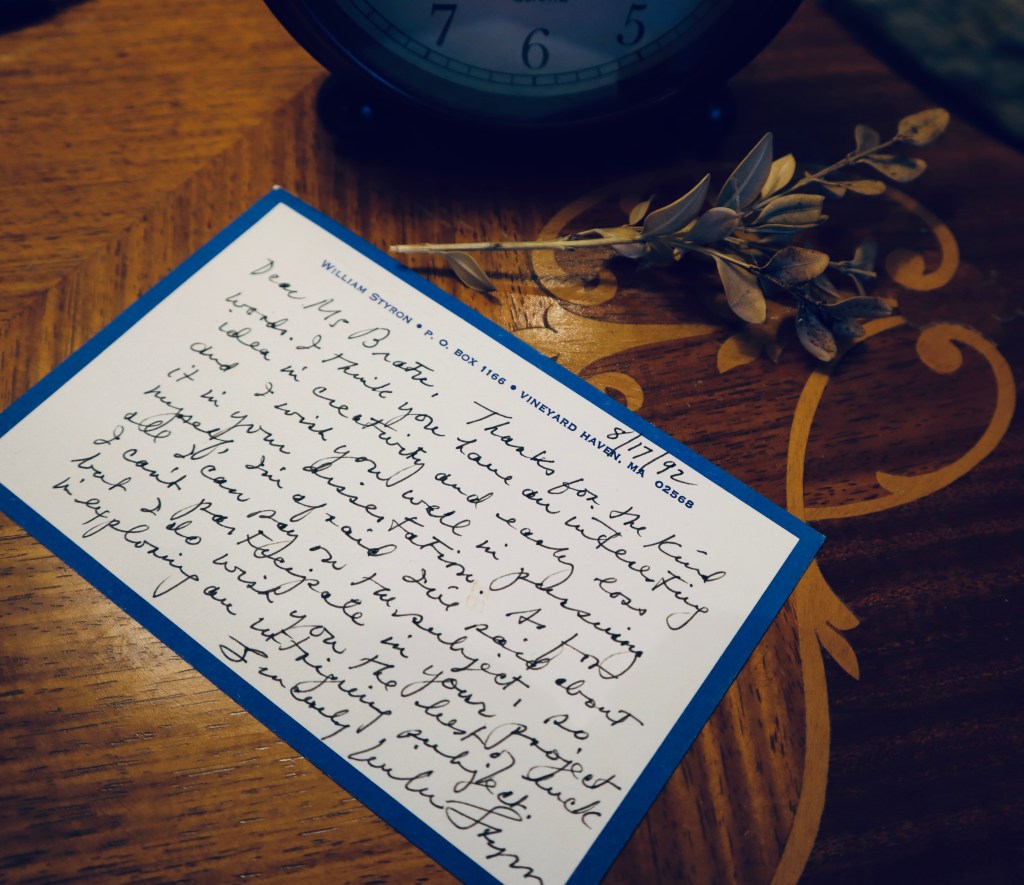 7 6 5
WILLIAM STYRON • P. O. BOX 1166 • VINEYARD HAVEN, MA 02568
8/17/92
Dear Ms Thanks for the kind
words. I think you have an interesting
idea in creativity and early loss
and I wish you well in pursuing
it in your dissertation. As for
myself, I'm afraid I've said about
all I can say on the subject, so
I can't participate in your project
but I do wish you the best of luck
in exploring an intriguing subject.
Sincerely William Styron